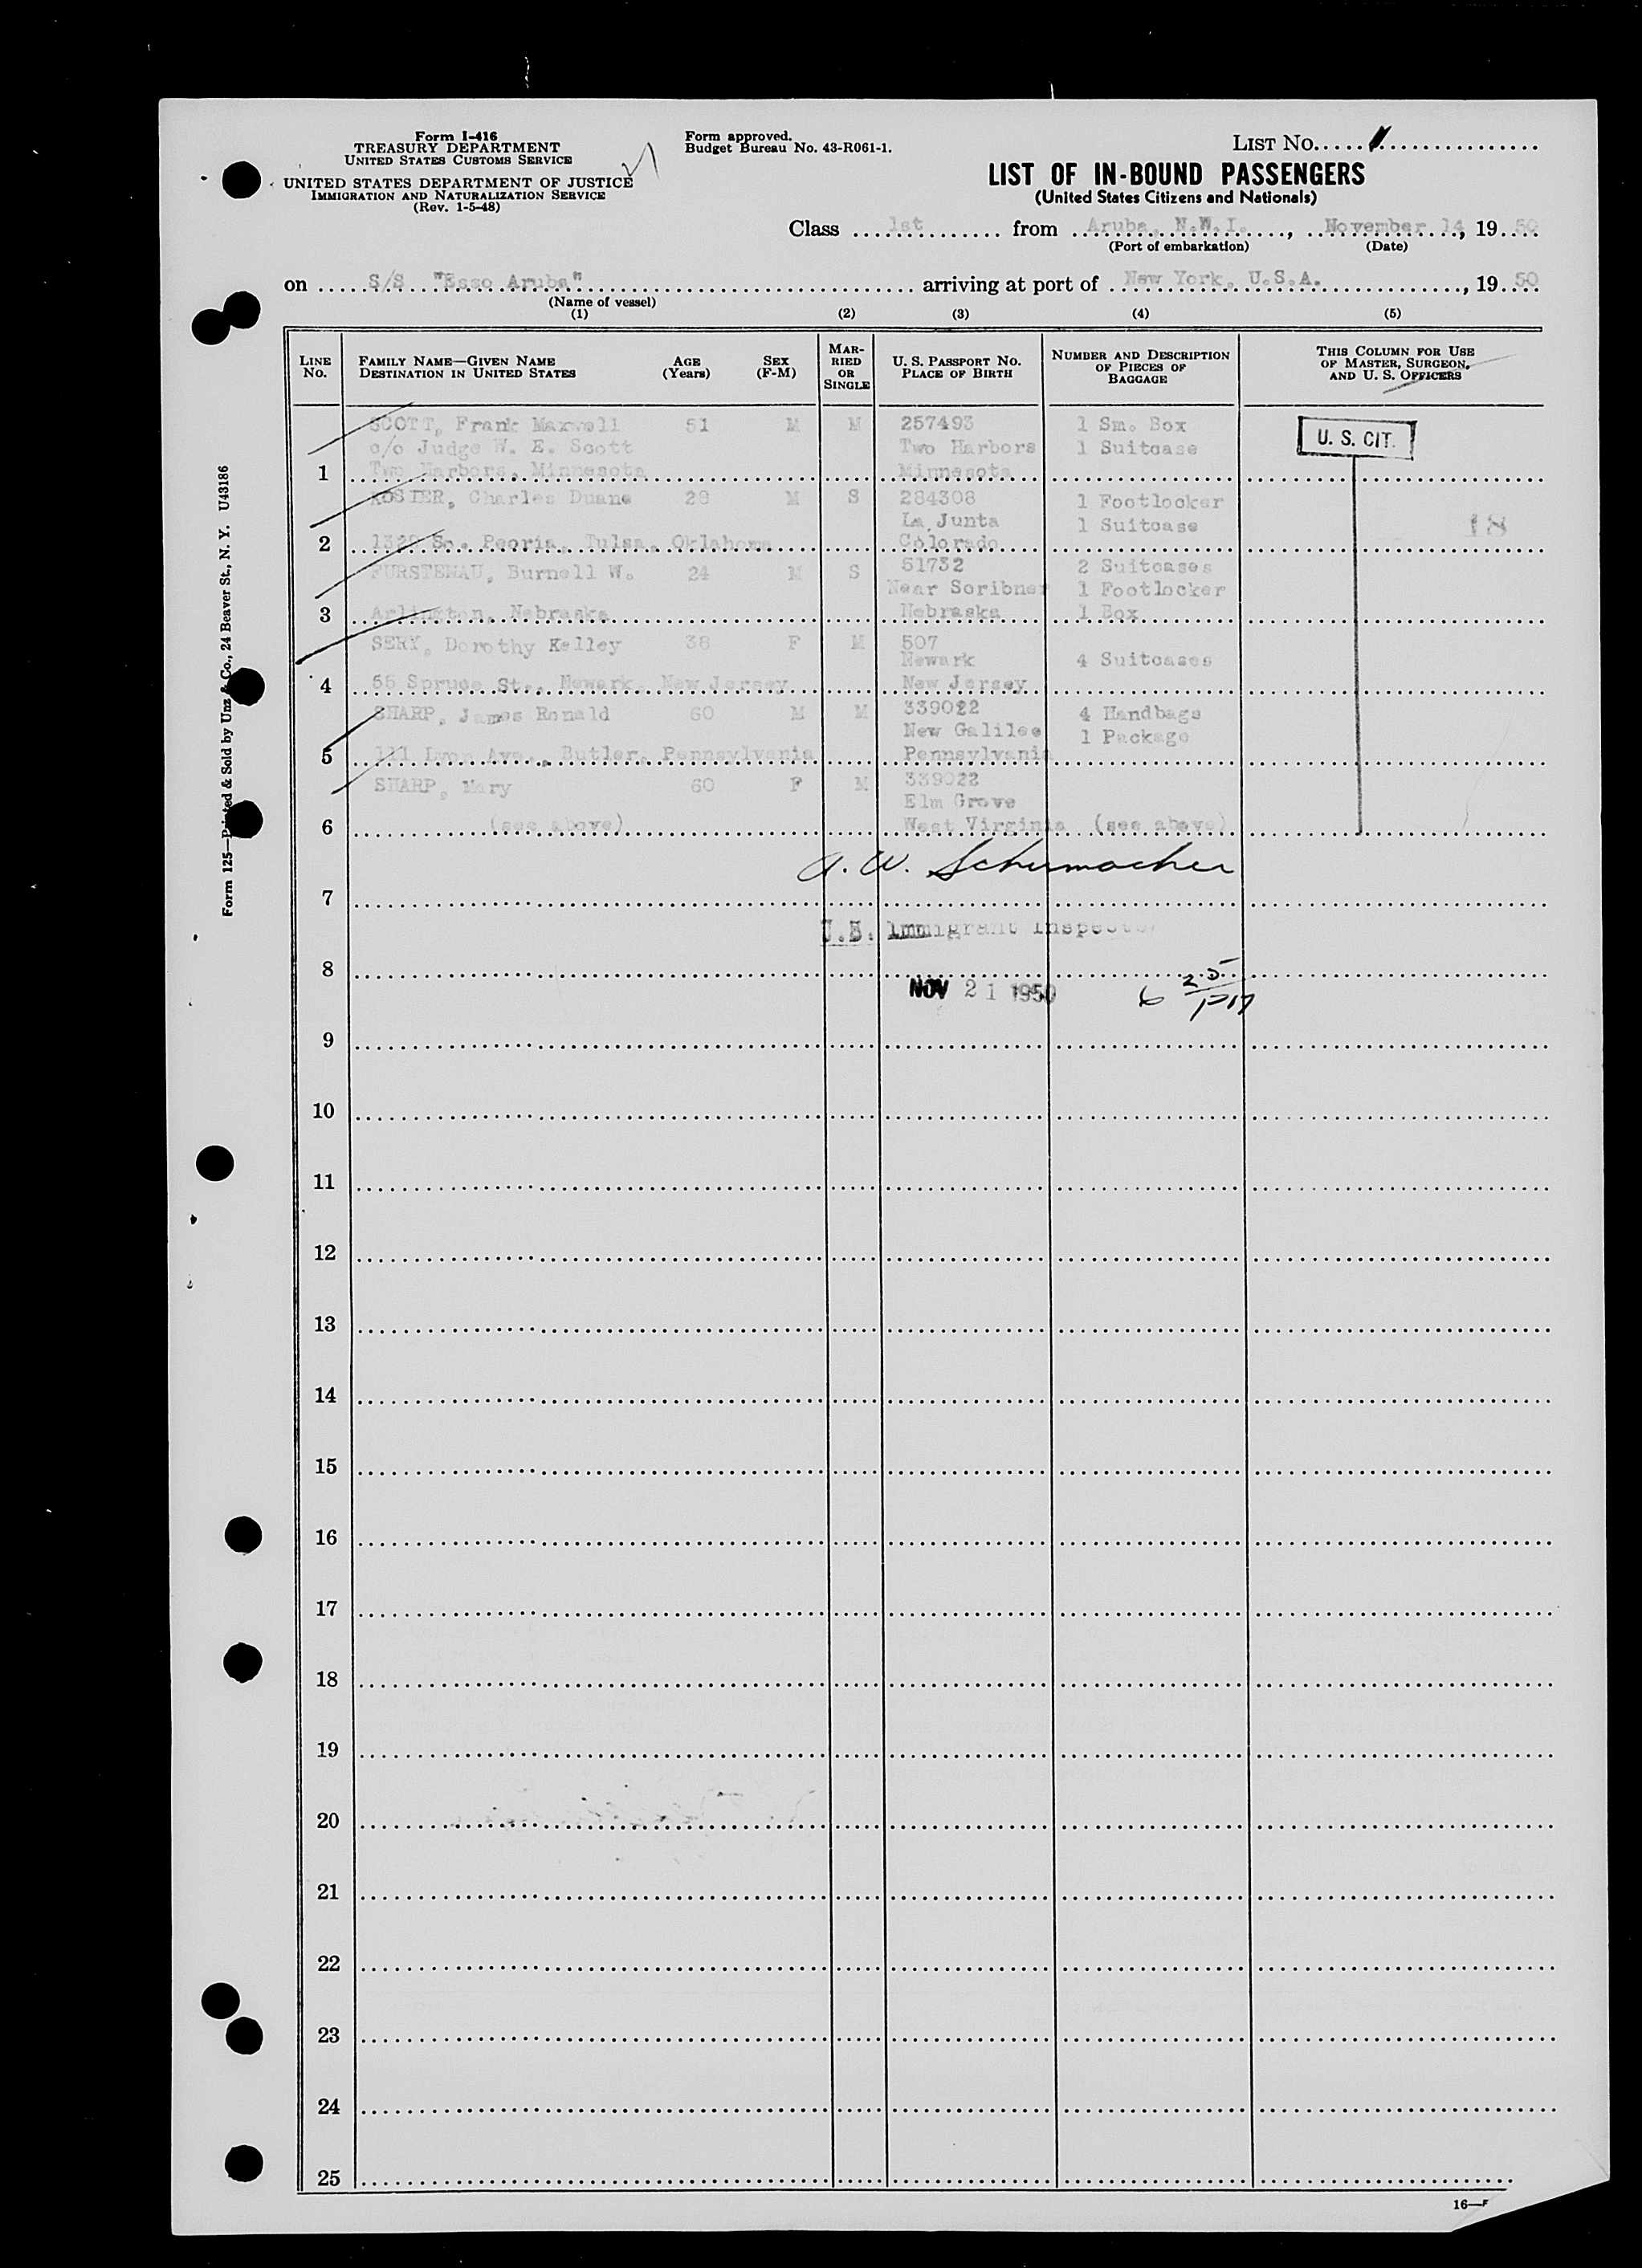 Form I-416
TREASURY DEPARTMENT
UNITED STATES CUSTOMS SERVICE
UNITED STATES DEPARTMENT OF JUSTICE
IMMIGRATION AND NATURALIZATION SERVICE
(Rev. 1-5-48)
Form approved.
Budget Bureau No. 43-R061-1.
LIST No. 1
LIST OF IN-BOUND PASSENGERS
(United States Citizens and Nationals)
Class 1st from Aruba, N.W.I., November 14, 1950
(Port of embarkation) (Date)
on S/S "Esso Aruba" arriving at port of New York, U.S.A., 1950
(Name of vessel)
(1) (2) (3) (4) (5)
LINE No. FAMILY NAME—GIVEN NAME DESTINATION IN UNITED STATES AGE (Years) SEX (F-M) MARRIED OR SINGLE U. S. PASSPORT NO. PLACE OF BIRTH NUMBER AND DESCRIPTION OF PIECES OF BAGGAGE THIS COLUMN FOR USE OF MASTER, SURGEON, AND U. S. OFFICERS
SCOTT, Frank Maxwell 51 M M 257493 1 Sm. Box
U. S. CIT.
c/o Judge W. E. Scott Two Harbors 1 Suitcase
1 Two Harbors, Minnesota Minnesota
KOSTER, Charles Duane 29 M S 284308 1 Footlocker
La Junta 1 Suitcase 18
2 1329 So. Peoria, Tulsa, Oklahoma Colorado
FURSTENAU, Burnell W. 24 M S 51732 2 Suitcases
Near Scribner 1 Footlocker
3 Arlington, Nebraska Nebraska 1 Box
SERY, Dorothy Kelley 38 F M 507
Newark 4 Suitcases
4 55 Spruce St., Newark, New Jersey New Jersey
SHARP, James Ronald 60 M M 339022 4 Handbags
New Galilee 1 Package
5 111 Lyon Ave., Butler, Pennsylvania Pennsylvania
SHARP, Mary 60 F M 339022
Elm Grove
6 (see above) West Virginia (see above)
A. W. Schumacher
7
U.S. Immigrant Inspector
8
NOV 21 1950 6 25 PM
9
10
11
12
13
14
15
16
17
18
19
20
21
22
23
24
25
16—
Form 125—Printed & Sold by Unz & Co., 24 Beaver St., N. Y. U43186